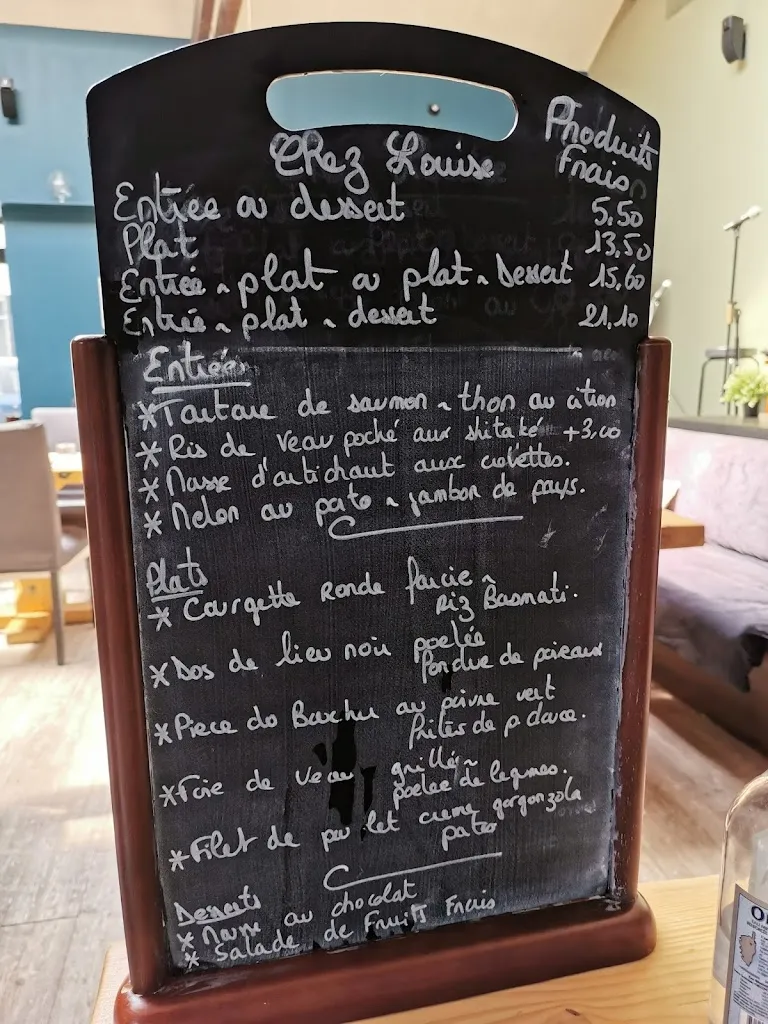 Chez Louise
Produits
Frais
Entrée ou dessert 5,50
Plat 13,50
Entrée ~ plat ou plat ~ Dessert 15,60
Entrée ~ plat ~ dessert 21,10
Entrées
* Tartare de saumon ~ thon au citron
* Ris de veau poché aux shitaké +3,00
* Masse d'artichaut aux crevettes.
* Melon au pato ~ jambon de pays.
Plats
* Courgette Ronde farcie ~
Riz Basmati.
* Dos de lieu noir poelée
fondue de poireaux
* Piece do Buxchu au poivre vert
frites de p douce.
* Foie de veau grillé ~
poelée de legumes.
* Filet de poulet creme gorgonzola
pates
Desserts
* au chocolat
* Salade de Fruits Frais